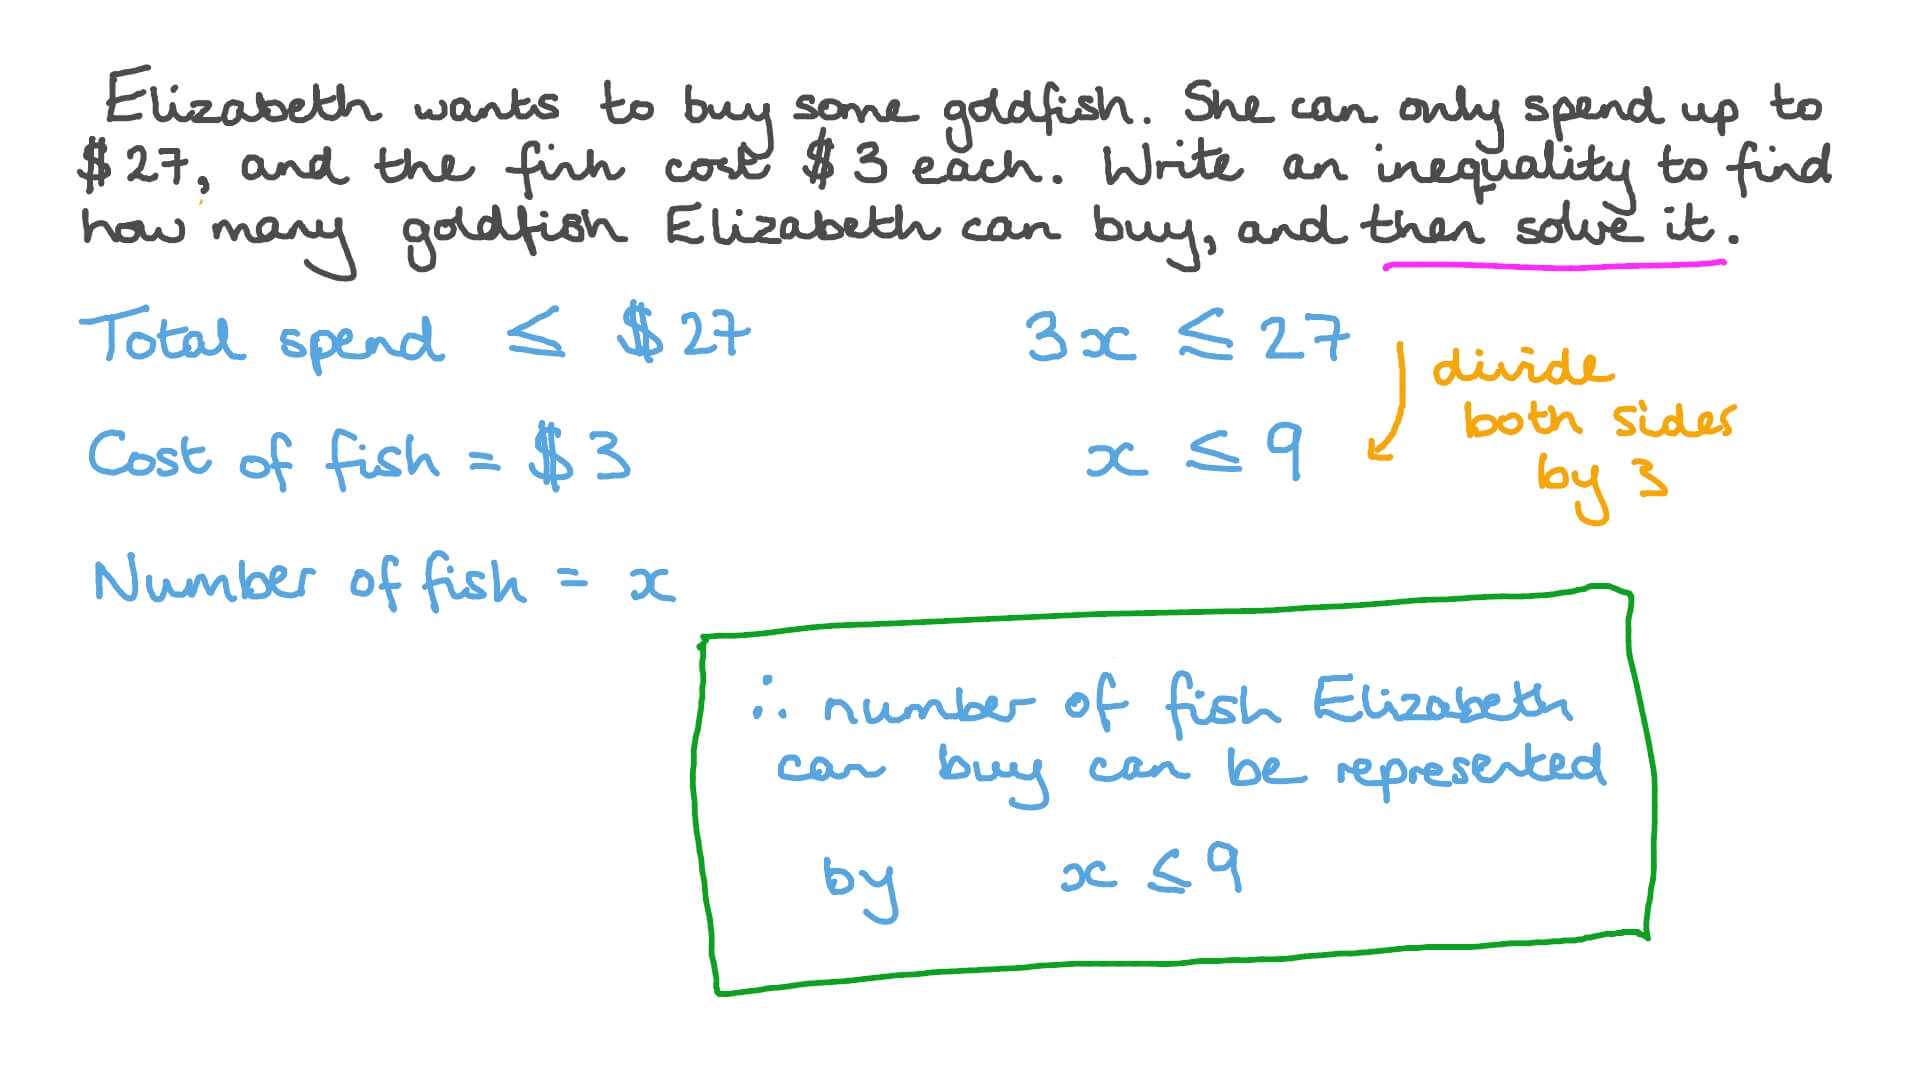 Elizabeth wants to buy some goldfish. She can only spend up to
$27, and the fish cost $3 each. Write an inequality to find
how many goldfish Elizabeth can buy, and then solve it.
Total spend ≤ $27
Cost of fish = $3
Number of fish = x
3x ≤ 27
x ≤ 9
divide
both sides
by 3
∴ number of fish Elizabeth
can buy can be represented
by x ≤ 9